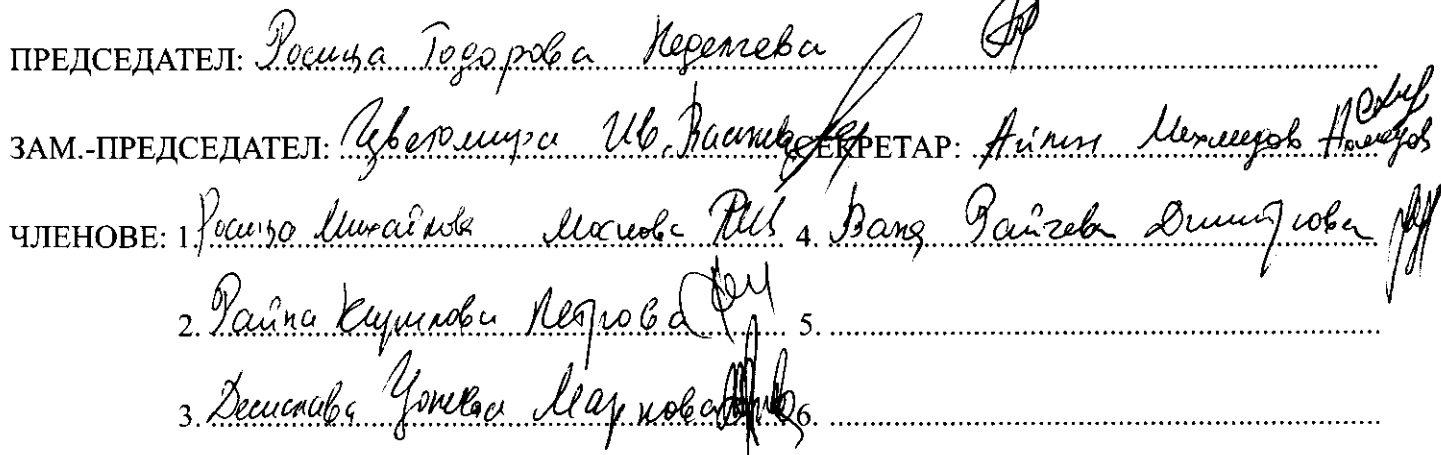 ПРЕДСЕДАТЕЛ: Росица Тодорова Неделчева
ЗАМ.-ПРЕДСЕДАТЕЛ: Цветомира Ив. СЕКРЕТАР: Айлин
ЧЛЕНОВЕ: 1. Росица Михайлова Москова 4. Ваня Райчева Димитрова
2. Райна Кирилова Петрова 5.
3. Десислава Цонева Маркова 6.